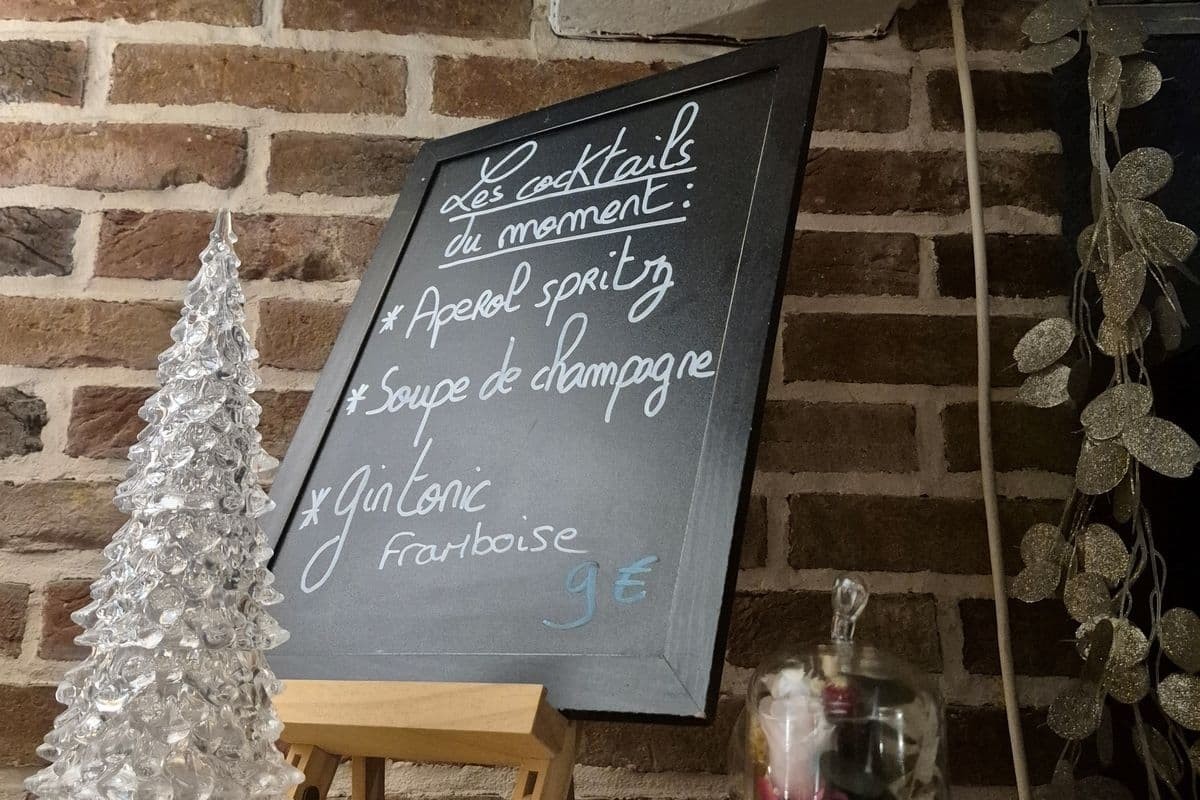 Les cocktails
du moment :
* Aperol spritz
* Soupe de champagne
* Gin tonic
Framboise
9 €